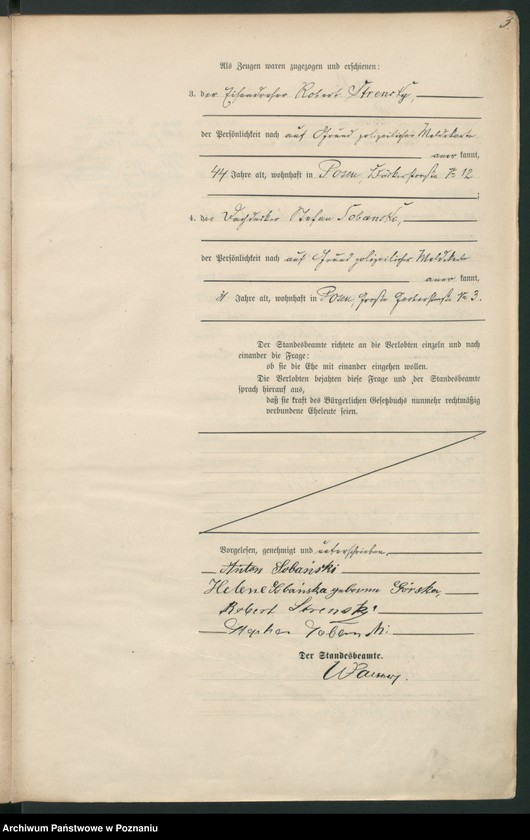 3.
Als Zeugen waren zugezogen und erschienen:
3. der Eisendreher Robert Strensky,
der Persönlichkeit nach auf Grund polizeilicher Meldekarte
aner kannt,
44 Jahre alt, wohnhaft in Posen, Bäckerstraße № 12
;
4. der Dachdecker Stefan Sobański,
der Persönlichkeit nach auf Grund polizeilicher Meldekarte
aner kannt,
Jahre alt, wohnhaft in Posen, Große Gerberstraße № 3.
Der Standesbeamte richtete an die Verlobten einzeln und nach
einander die Frage:
ob sie die Ehe mit einander eingehen wollen.
Die Verlobten bejahten diese Frage und der Standesbeamte
sprach hierauf aus,
daß sie kraft des Bürgerlichen Gesetzbuchs nunmehr rechtmäßig
verbundene Eheleute seien.
Vorgelesen, genehmigt und unterschrieben.
Anton Sobański
Helene Sobańska geborene Górska,
Robert Strensky
Sobański
Der Standesbeamte.
Archiwum Państwowe w Poznaniu